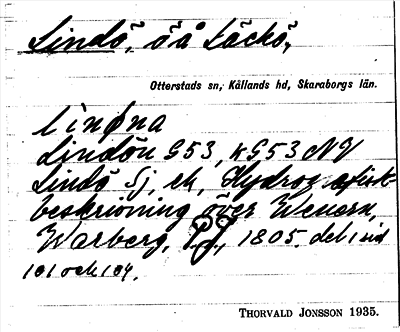 Lindö, ö å Läckö,
Otterstads sn, Kållands hd, Skaraborgs län.
linøna
Lindön G53, KG53 NV
Lindö Sj, ek, Hydrog
beskrivning över Wenern,
Warberg, P.J., 1805. del, sid
101 och 104.
THORVALD JONSSON 1935.